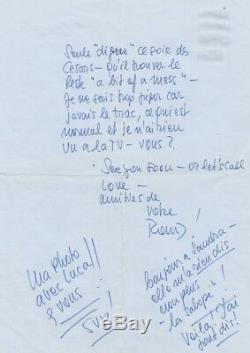 Seule "digne" ce soir des
Cesars - qu'il trouver le
Reste "a bit of a mess" -
Je ne sais trop car
j'avais le trac, ce qui est
normal et je n'ai rien
vu a la TV - vous ?
See you soon - or let's call
Love -
amitiés de
votre
Ma photo
avec Luca !!
& vous !
bonjour a
elle m'a rien dit -
non plus -
la salope" !
Voila ! J'ai
tout dit.